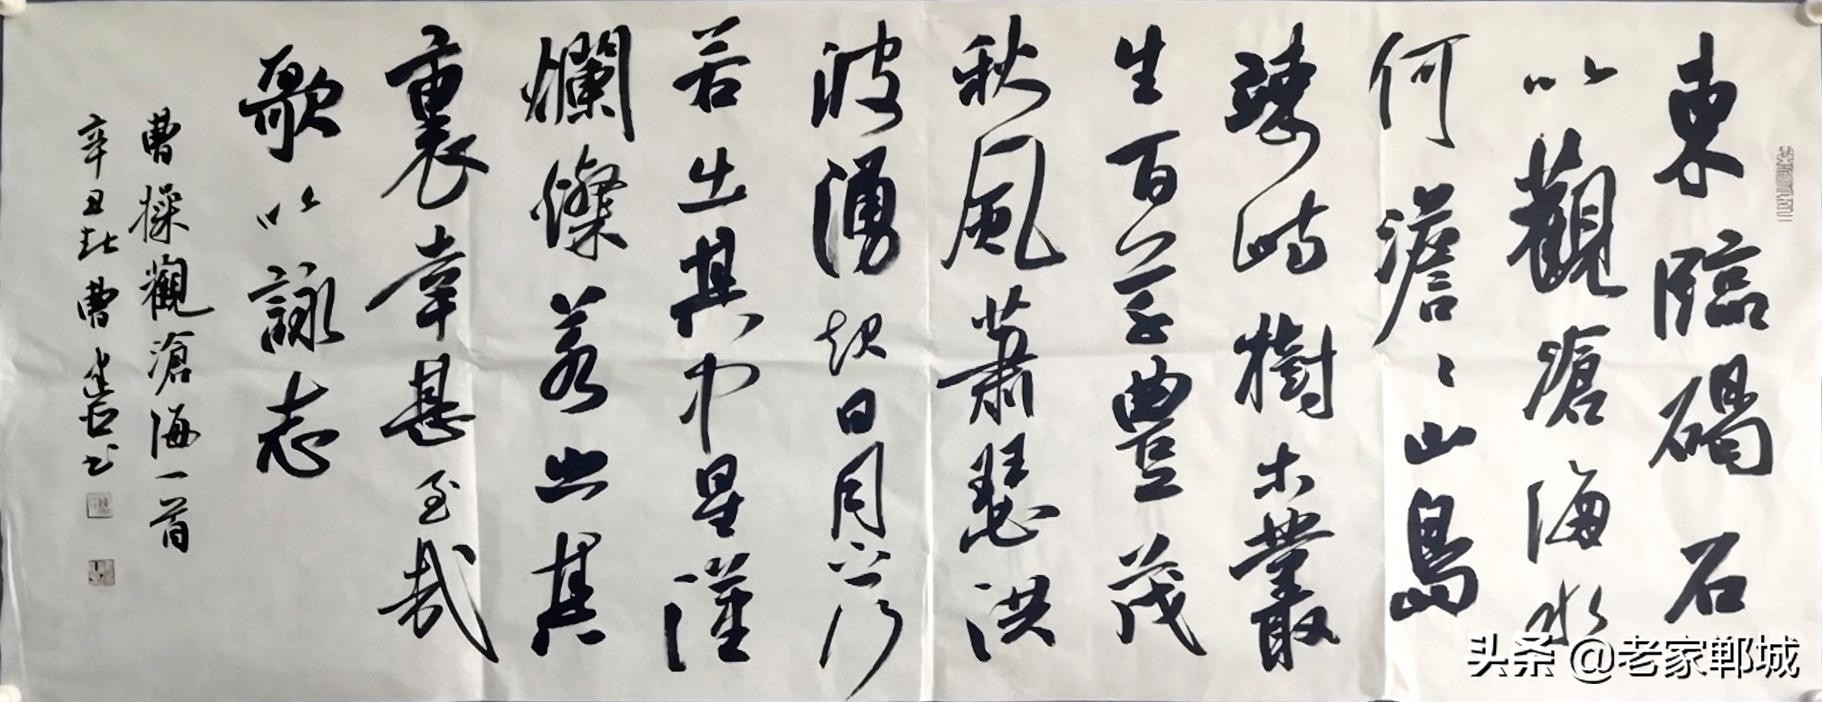 東臨碣石
以觀滄海水
何澹〻山島
竦峙樹木叢
生百草豐茂
秋風蕭瑟洪
波湧起日月之行
若出其中星漢
爛燦若出其
裏幸甚至哉
歌以詠志
曹操觀滄海一首
辛丑 曹 书
头条 @老家郸城